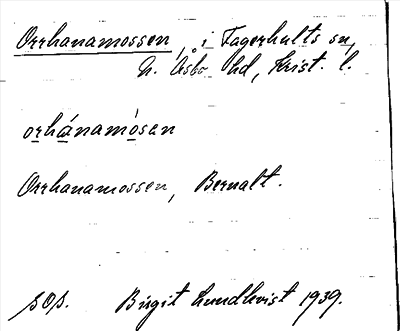 Orrhanamossen, i Fagerhults sn,
N. Åsbo hd, Krist. l.
orhánamòsan
Orrhanamossen, Bernalt.
sOp. Birgit Lundkvist 1939.